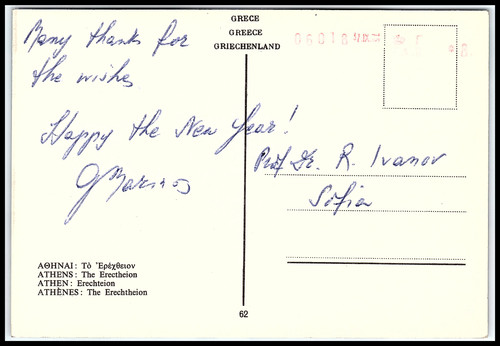 GRECE
GREECE
GRIECHENLAND
Many thanks for
the wishes
Happy the New Year!
Prof Dr. R. Ivanov
Sofia
ΑΘΗΝΑΙ: Τό Ἐρέχθειον
ATHENS: The Erectheion
ATHEN: Erechteion
ATHÈNES: The Erechtheion
62